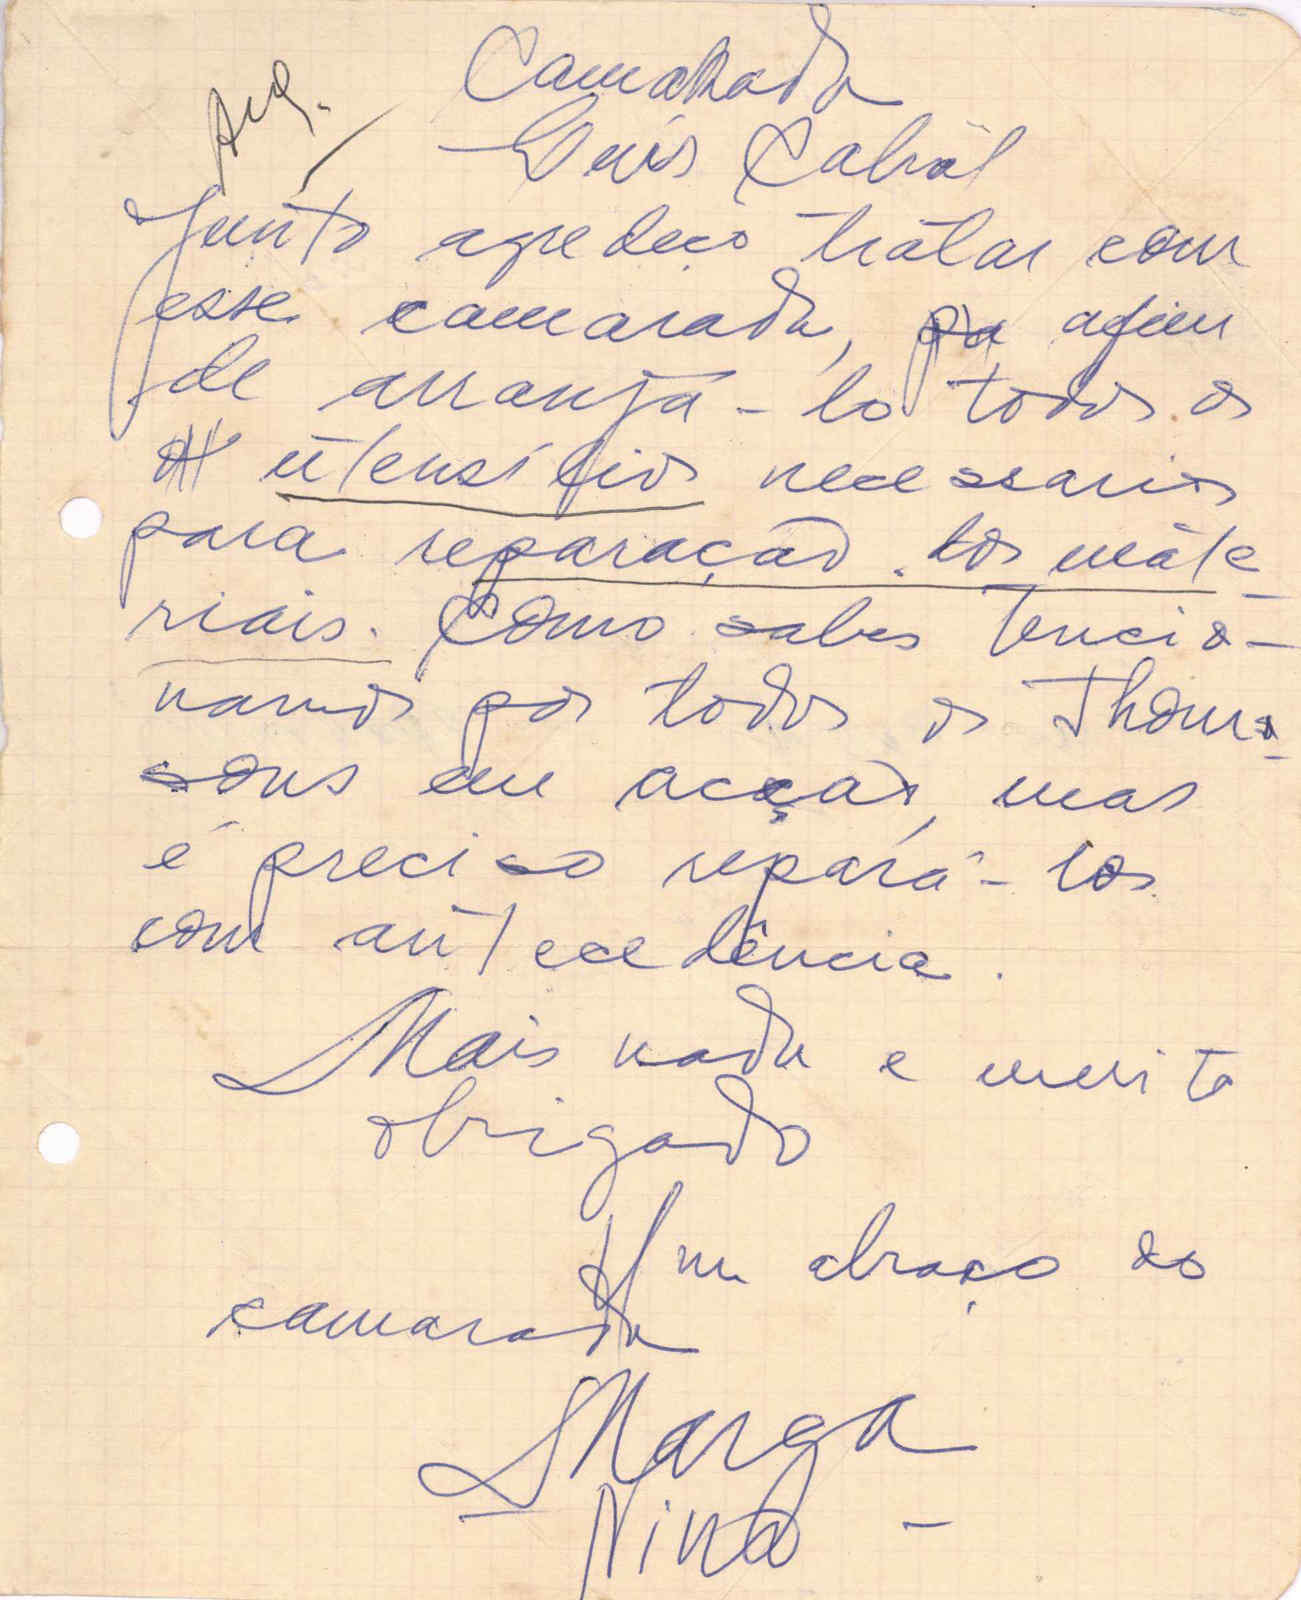 Arq.
Camarada
Luís Cabral
Junto agredeço tratar com
esse camarada, pa afim
de arranjá-lo todos os
utensílios necessarios
para reparação dos máte
riais. Como sabes tencio-
namos pôs todos os Thom-
sons em acção, mas
é preciso repará-los
com antecedência.
Mais nada e muito
obrigado
Um abraço do
camarada
Marga
Nino -